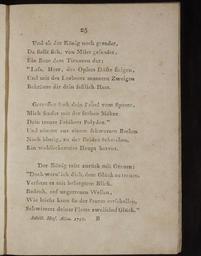 25
Und als der König noch geendet,
Da stellt sich, von Milet gesendet,
Ein Bote dem Tyrannen dar:
"Lass, Herr, des Opfers Düfte steigen,
Und mit des Lorbeers muntern Zweigen
Bekränze dir dein festlich Haar.
Getroffen sank dein Feind vom Speere,
Mich sendet mit der frohen Mähre
Dein treuer Feldherr Polydor."
Und nimmt aus einem schwarzen Becken
Noch blutig, zu der Beiden Schrecken,
Ein wohlbekanntes Haupt hervor.
Der König tritt zurück mit Grauen:
"Doch warn' ich dich, dem Glück zu trauen,
Versetzt er mit besorgtem Blick.
Bedenk, auf ungetreuen Wellen,
Wie leicht kann sie der Sturm zerschellen,
Schwimmt deiner Flotte zweifelnd Glück."
Schill. Mus. Alm. 1798. B